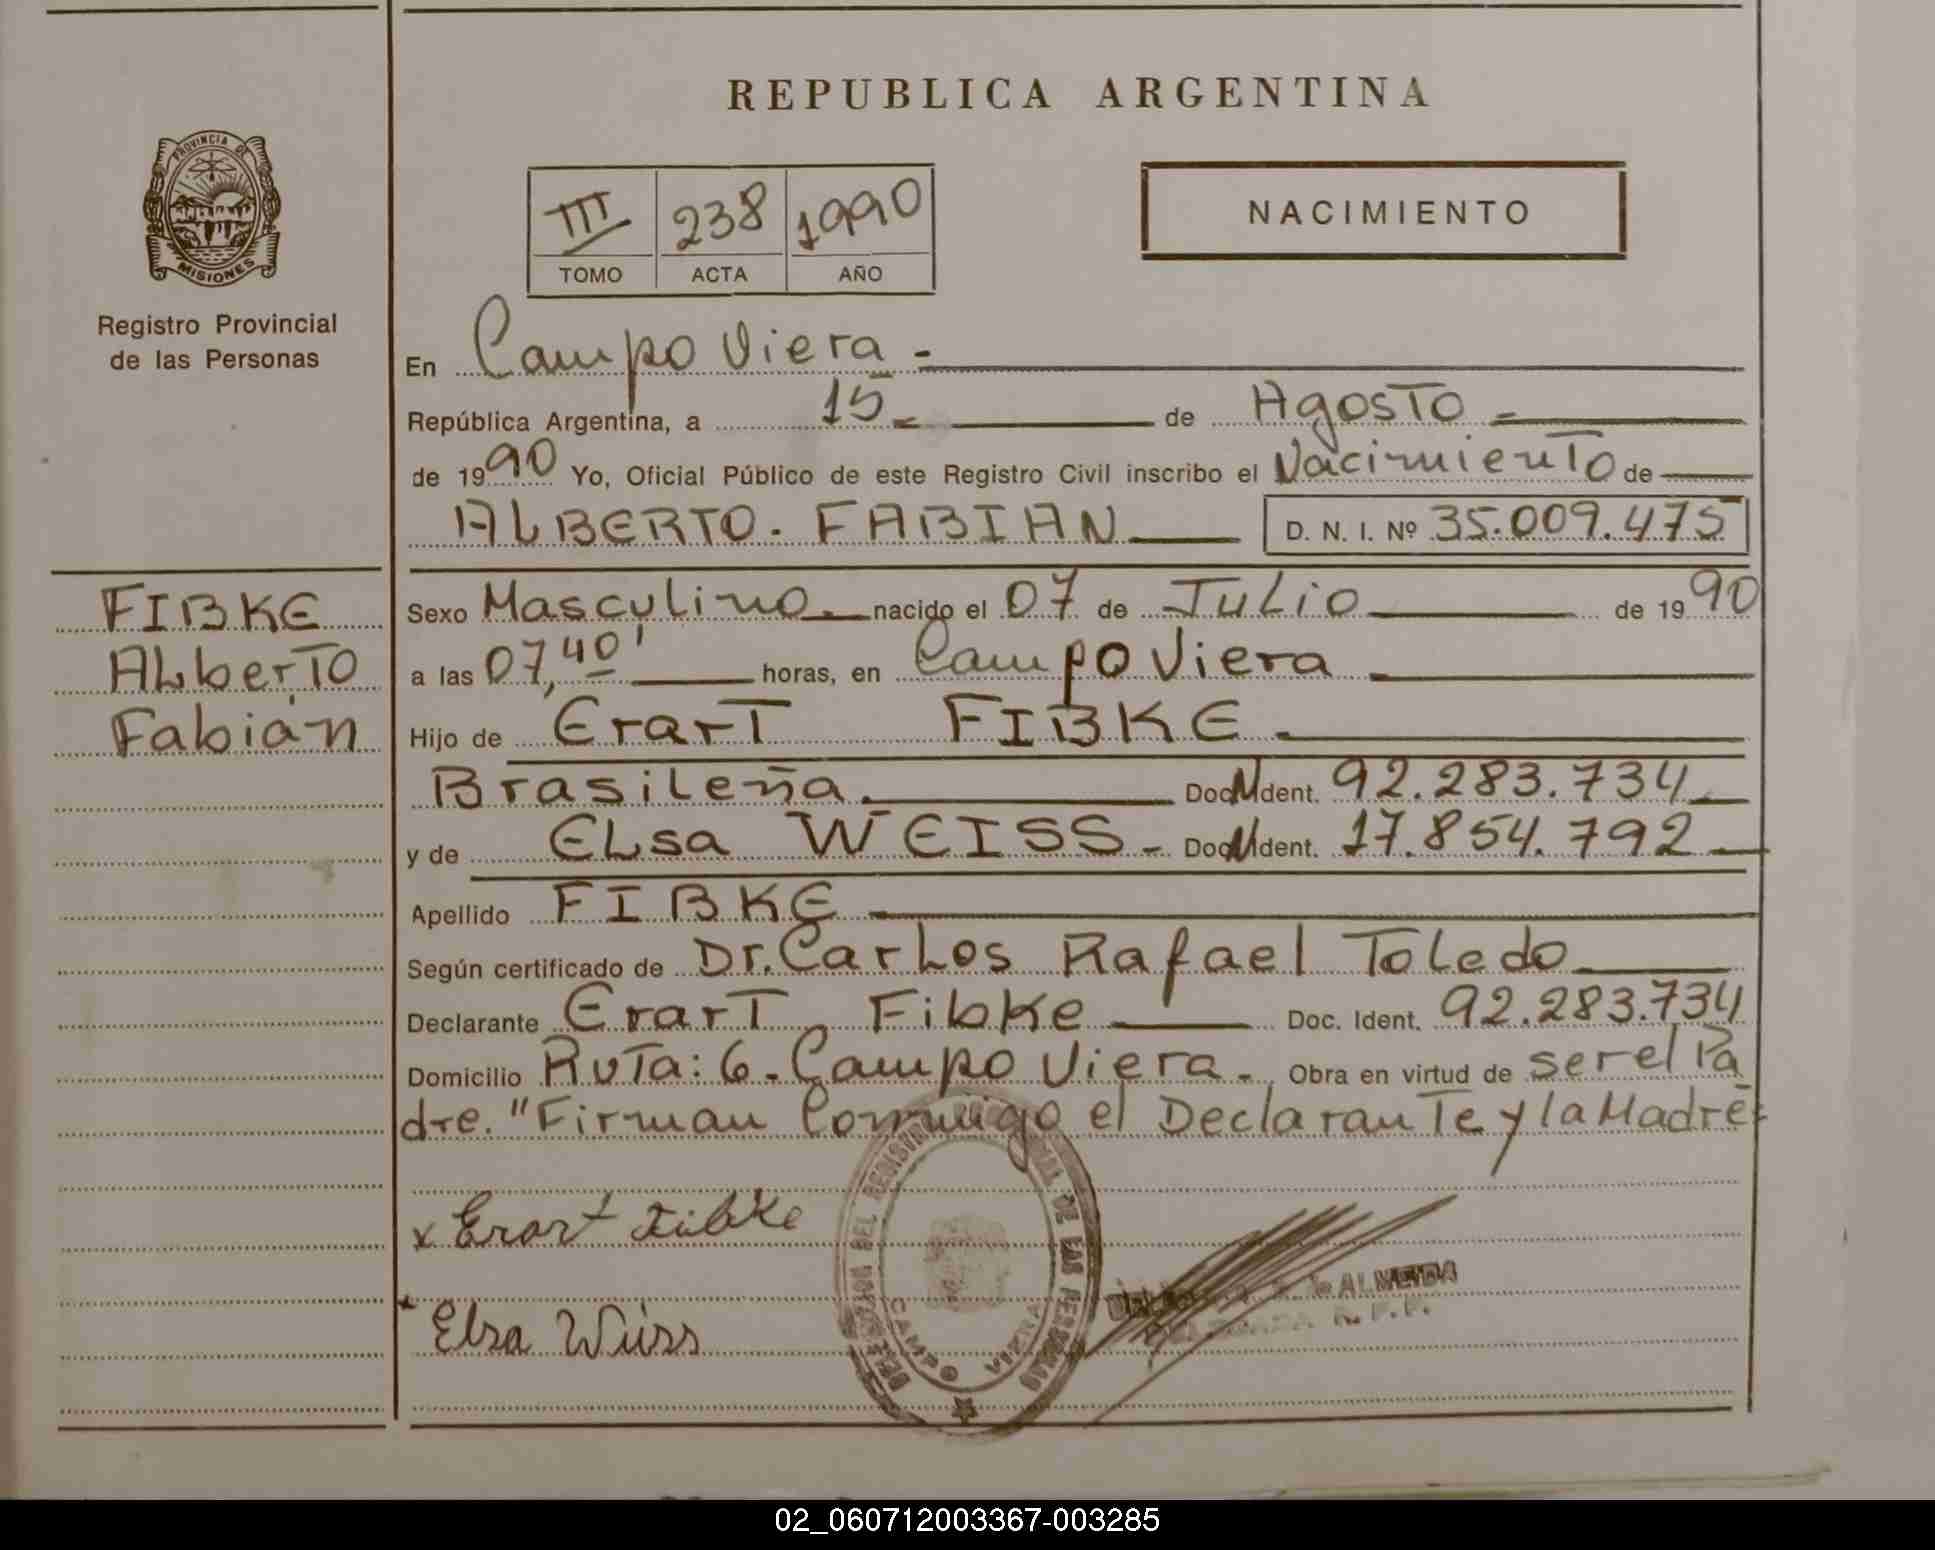 REPUBLICA ARGENTINA
PROVINCIA DE MISIONES
Registro Provincial
de las Personas
III 238 1990
TOMO ACTA AÑO
NACIMIENTO
En Campo Viera.-
República Argentina, a 15- de Agosto-
de 1990 Yo, Oficial Público de este Registro Civil inscribo el Nacimiento de
ALBERTO. FABIAN D. N. I. Nº 35.009.475
FIBKE
Alberto
Fabián
Sexo Masculino. nacido el 07 de Julio de 1990
a las 07,40' horas, en Campo Viera
Hijo de Erart FIBKE.
Brasileña. Doc. Ident. 92.283.734
y de ELsa WEISS.- Doc. Ident. 17.854.792
Apellido FIBKE
Según certificado de Dr. Carlos Rafael Toledo
Declarante Erart Fibke Doc. Ident. 92.283.734
Domicilio Ruta: 6. Campo Viera.- Obra en virtud de ser el Pa
dre. "Firman Conmigo el Declarante y la Madre
x Erart Fibke
DEL REGISTRO DE LAS PERSONAS
CAMPO VIERA
ALMEIDA
R.P.P.
x Elsa Weiss
02_060712003367-003285